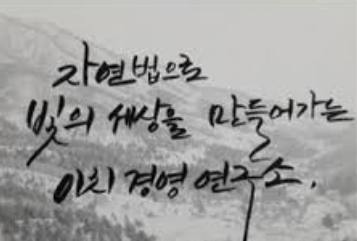 자연법으로
빛의 세상을 만들어가는
이치 경영 연구소.